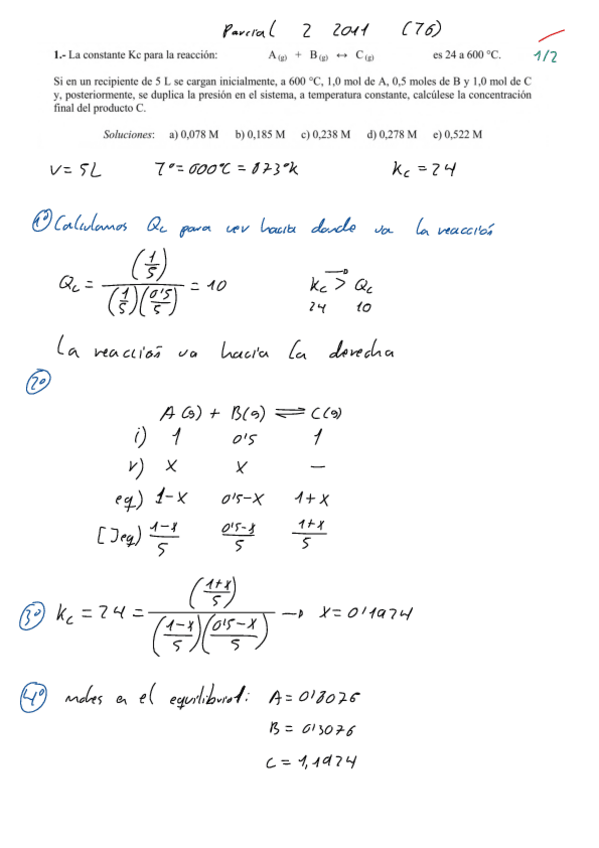 Parcial 2 2011 (T6)
1/2
1.- La constante Kc para la reacción: A (g) + B (g) ↔ C (g) es 24 a 600 °C.
Si en un recipiente de 5 L se cargan inicialmente, a 600 °C, 1,0 mol de A, 0,5 moles de B y 1,0 mol de C
y, posteriormente, se duplica la presión en el sistema, a temperatura constante, calcúlese la concentración
final del producto C.
Soluciones: a) 0,078 M b) 0,185 M c) 0,238 M d) 0,278 M e) 0,522 M
V = 5L T° = 600°C = 873°K Kc = 24
1º) Calculamos Qc para ver hacia donde va la reacción
Qc = (1/5) / ((1/5)(0'5/5)) = 10 Kc > Qc
24 10
La reacción va hacia la derecha
2º)
A(g) + B(g) ⇌ C(g)
i) 1 0'5 1
r) x x —
eq) 1-x 0'5-x 1+x
[ ]eq) 1-x/5 0'5-x/5 1+x/5
3º) Kc = 24 = (1+x/5) / ((1-x/5)(0'5-x/5)) → x = 0'1924
4º) moles en el A = 0'8076
B = 0'3076
C = 1,1924